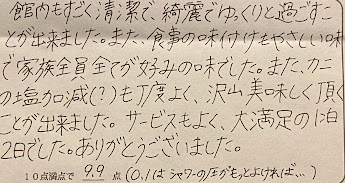 館内もすごく清潔で、綺麗でゆっくりと過ごすこ
とが出来ました。また、食事の味付けもやさしい味
で家族全員全てが好みの味でした。また、カニ
の塩加減(?)も丁度よく、沢山美味しく頂く
ことが出来ました。サービスもよく、大満足の1泊
2日でした。ありがとうございました。
10点満点で 9.9 点 (0.1はシャワーの圧がもっとよければ…)